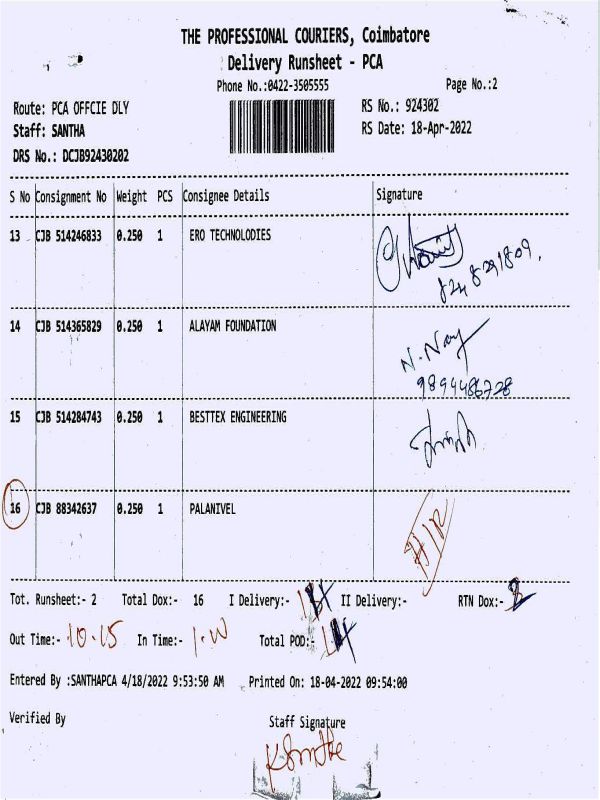 THE PROFESSIONAL COURIERS, Coimbatore
Delivery Runsheet - PCA
Phone No.:0422-3505555 Page No.:2
Route: PCA OFFCIE DLY RS No.: 924302
Staff: SANTHA RS Date: 18-Apr-2022
DRS No.: DCJB92430202
S No Consignment No Weight PCS Consignee Details Signature
13 CJB 514246833 0.250 1 ERO TECHNOLODIES
14 CJB 514365829 0.250 1 ALAYAM FOUNDATION
N. Nay
9894486728
15 CJB 514284743 0.250 1 BESTTEX ENGINEERING
16 CJB 88342637 0.250 1 PALANIVEL
Tot. Runsheet:- 2 Total Dox:- 16 I Delivery:- II Delivery:- RTN Dox:-
Out Time:- 10.15 In Time:- Total POD:-
Entered By :SANTHAPCA 4/18/2022 9:53:50 AM Printed On: 18-04-2022 09:54:00
Verified By Staff Signature